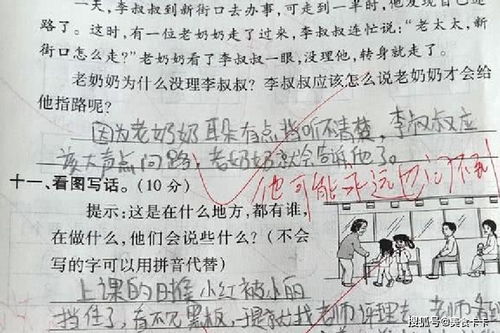 一天，李叔叔到新街口去办事，可走到一半时，他发现自己迷
路了。这时，有一位老奶奶走了过来，李叔叔连忙说：“老太太，新
街口怎么走？”老奶奶看了李叔叔一眼，没理他，转身就走了。
老奶奶为什么没理李叔叔？李叔叔应该怎么说老奶奶才会给
他指路呢？
因为老奶奶耳朵有点背听不清楚，李叔叔应
该大声点问路，老奶奶就会告诉他了。
他可能永远也问不到
十一、看图写话。（10 分）
提示：这是在什么地方，都有谁，
在做什么，他们会说些什么？（不会
写的字可以用拼音代替）
上课的时候小红被小丽
挡住了，看不见黑板，于是就去找老师评理去 老师
搜狐号@美食卡卡